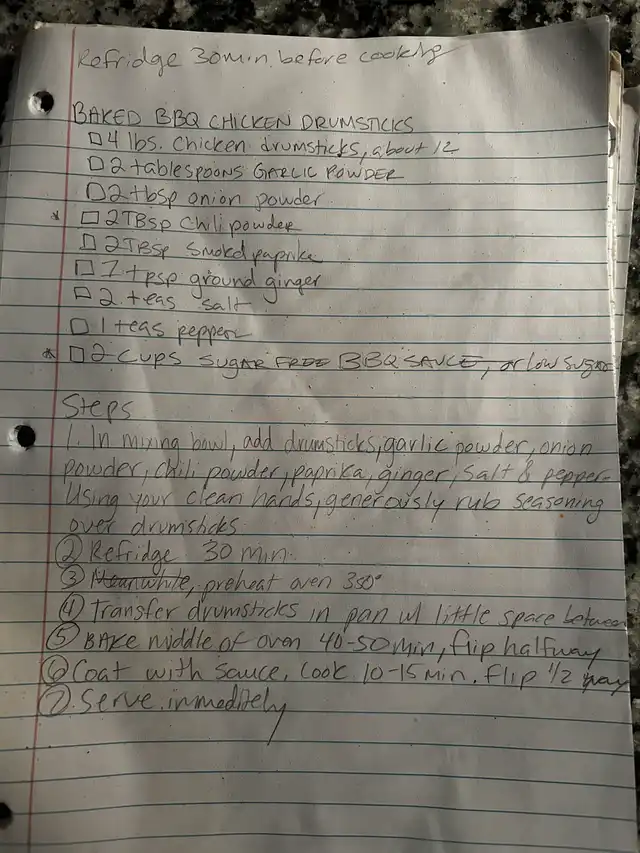 Refridge 30 min. before cooking
BAKED BBQ CHICKEN DRUMSTICKS
□ 4 lbs. Chicken drumsticks, about 12
□ 2 tablespoons GARLIC POWDER
□ 2 tbsp onion powder
* □ 2 TBsp Chili powder
□ 2 TBsp Smokd paprika
□ 1 tpsp ground ginger
□ 2 teas salt
□ 1 teas pepper
* □ 2 CUPS SUGAR FREE BBQ SAUCE, or low sugar
Steps
1. In mixing bowl, add drumsticks, garlic powder, onion
powder, chili powder, paprika, ginger, salt & pepper.
Using your clean hands, generously rub seasoning
over drumsticks
② Refridge 30 min.
③ Meanwhile, preheat oven 350°
④ Transfer drumsticks in pan w/ little space between
⑤ BAKE middle of oven 40-50 min, flip halfway
⑥ Coat with sauce, cook 10-15 min. flip 1/2 way
⑦ Serve immeditely